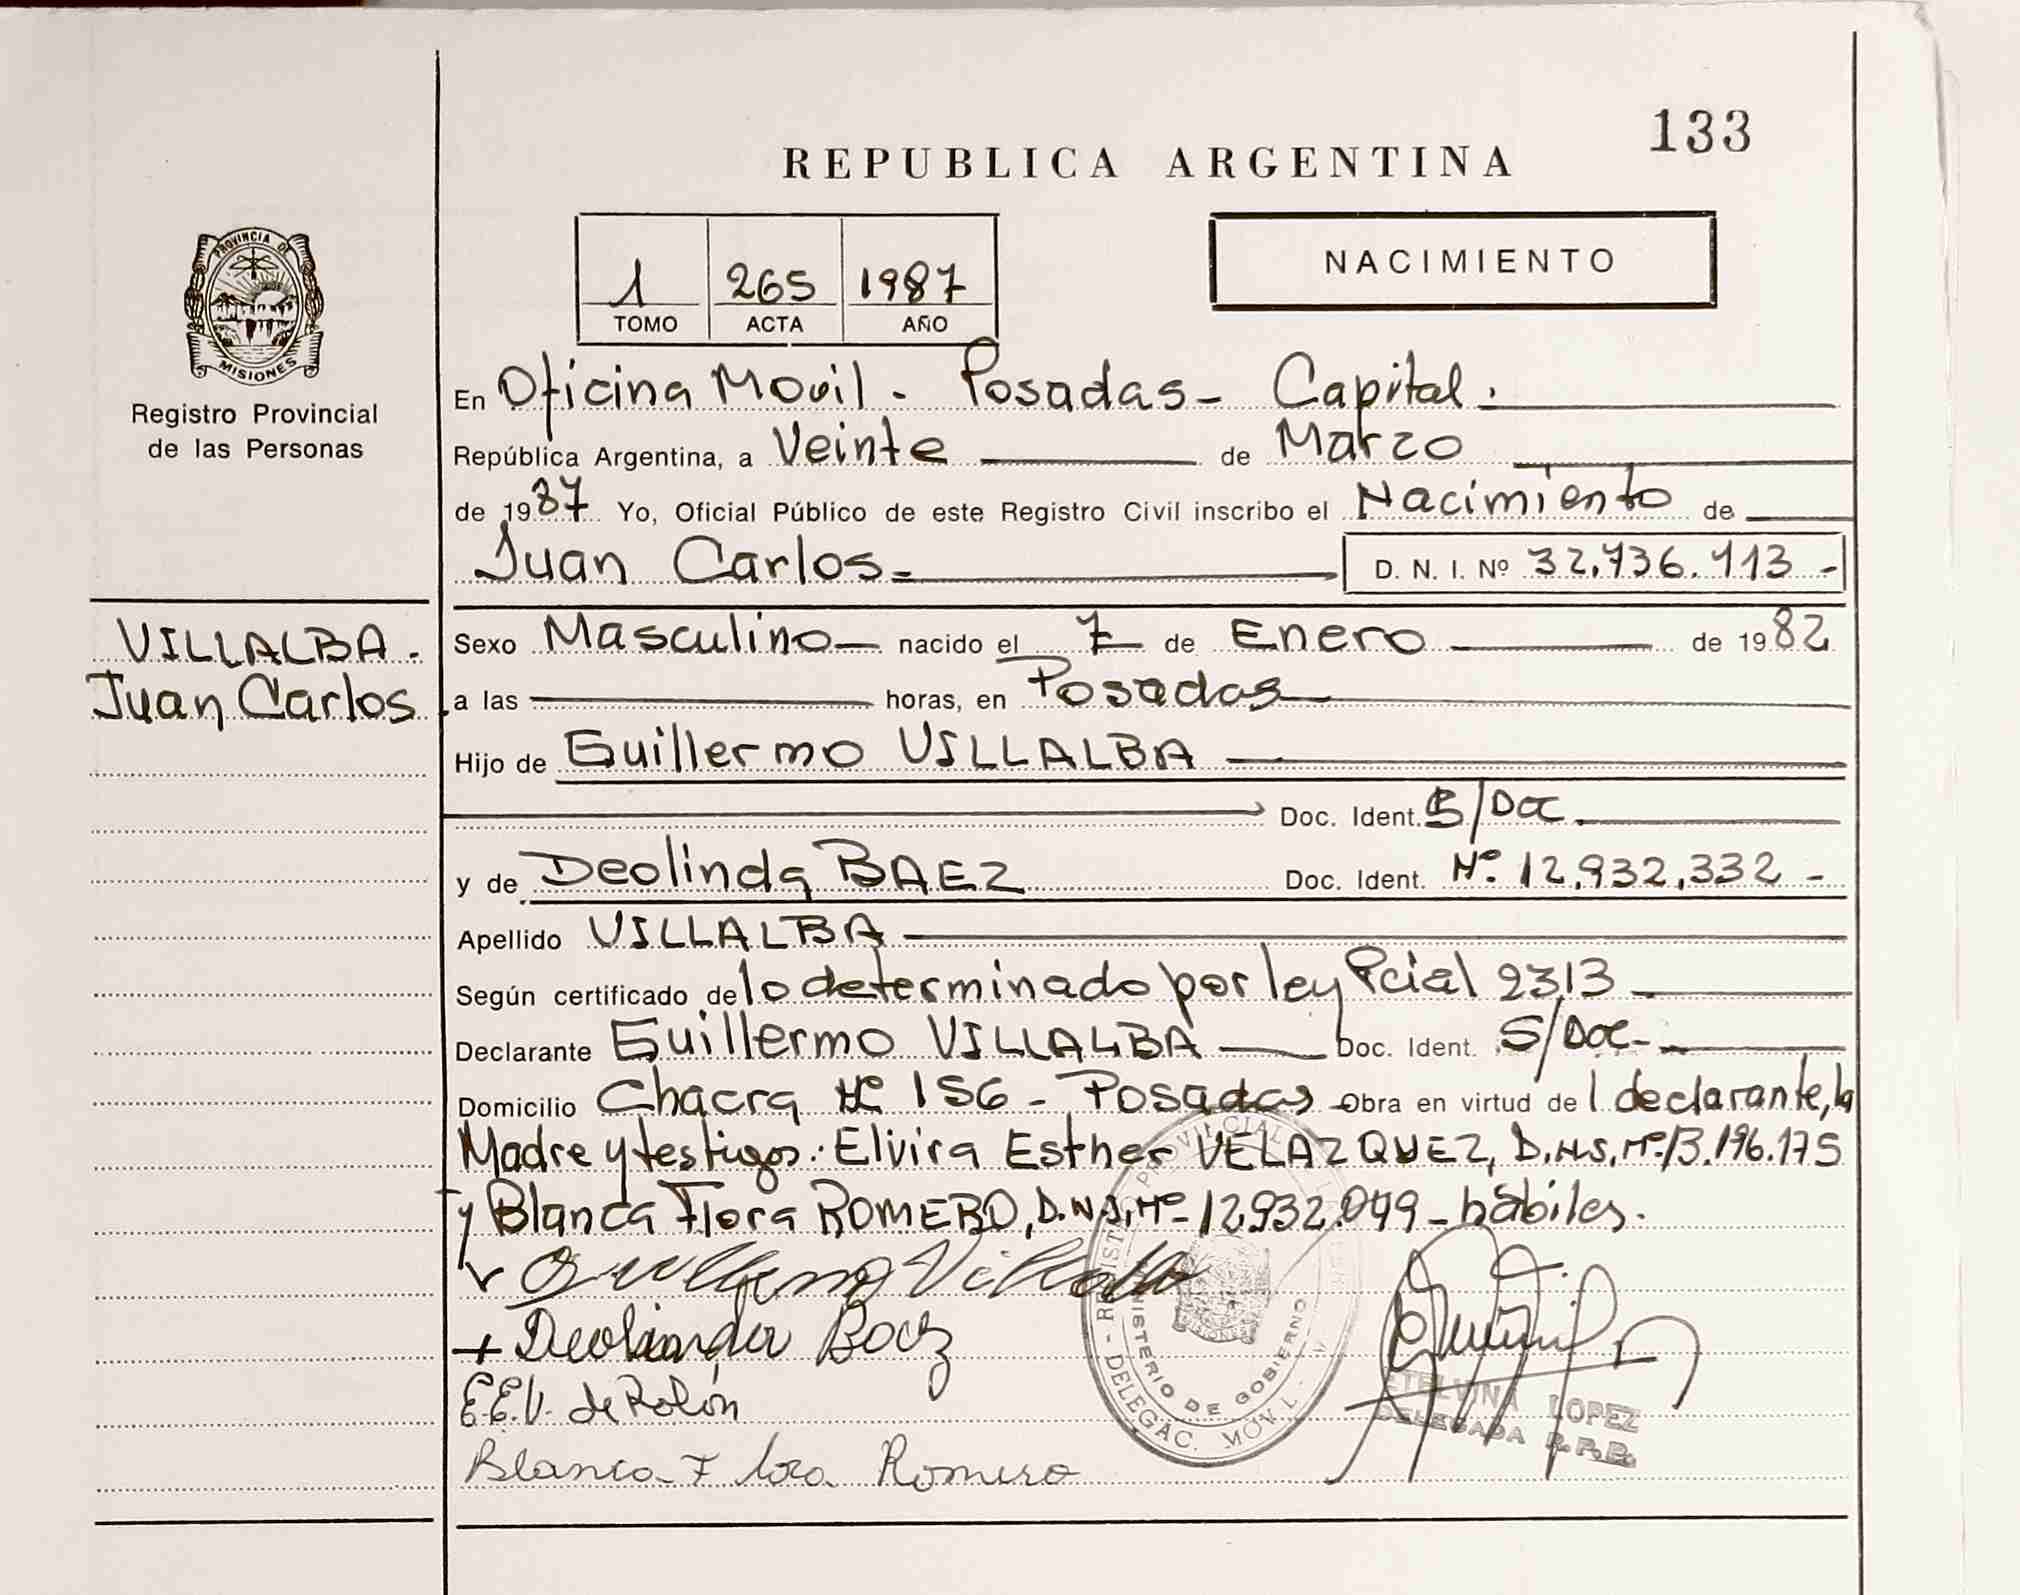 133
REPUBLICA ARGENTINA
1 265 1987
TOMO ACTA AÑO
NACIMIENTO
PROVINCIA DE
MISIONES
Registro Provincial
de las Personas
En Oficina Movil - Posadas - Capital.
República Argentina, a Veinte de Marzo
de 1987 Yo, Oficial Público de este Registro Civil inscribo el Nacimiento de
Juan Carlos D. N. I. Nº 32.736.113
VILLALBA
Juan Carlos
Sexo Masculino nacido el 7 de Enero de 1982
a las horas, en Posadas
Hijo de Guillermo VILLALBA
Doc. Ident. S/Doc
y de Deolinda BAEZ Doc. Ident. Nº 12.932.332
Apellido VILLALBA
Según certificado de lo determinado por ley Pcial 2313
Declarante Guillermo VILLALBA Doc. Ident. S/Doc
Domicilio Chacra Nº 156 - Posadas Obra en virtud de l declarante, la
Madre y testigos: Elvira Esther VELAZQUEZ, D.N.I. Nº 13.196.175
y Blanca Flora ROMERO, D.N.I. Nº 12.932.049 - hábiles.
Guillermo Villalba
Deolinda Baez
E.E.V. de Rolón
Blanca Flora Romero
REGISTRO PROVINCIAL
MINISTERIO DE GOBIERNO
MISIONES
DELEGAC. MOVIL
ETELVINA LOPEZ
DELEGADA R.P.P.